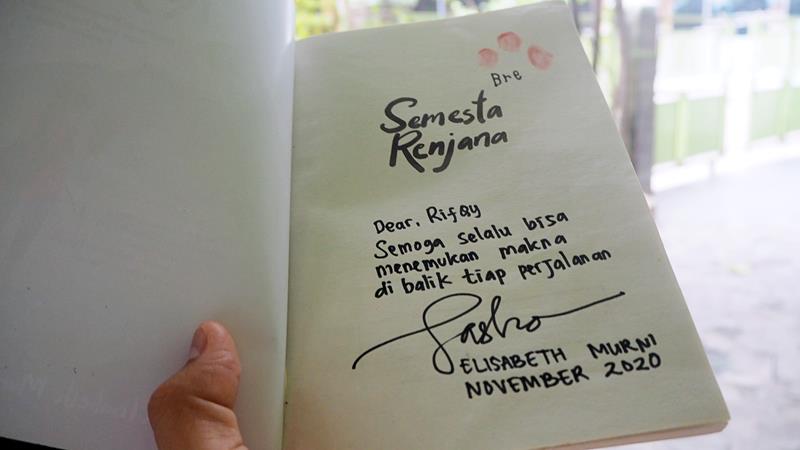 Bre
Semesta
Renjana
Dear, Rifqy
Semoga selalu bisa
menemukan makna
di balik tiap perjalanan
Sasha
ELISABETH MURNI
NOVEMBER 2020